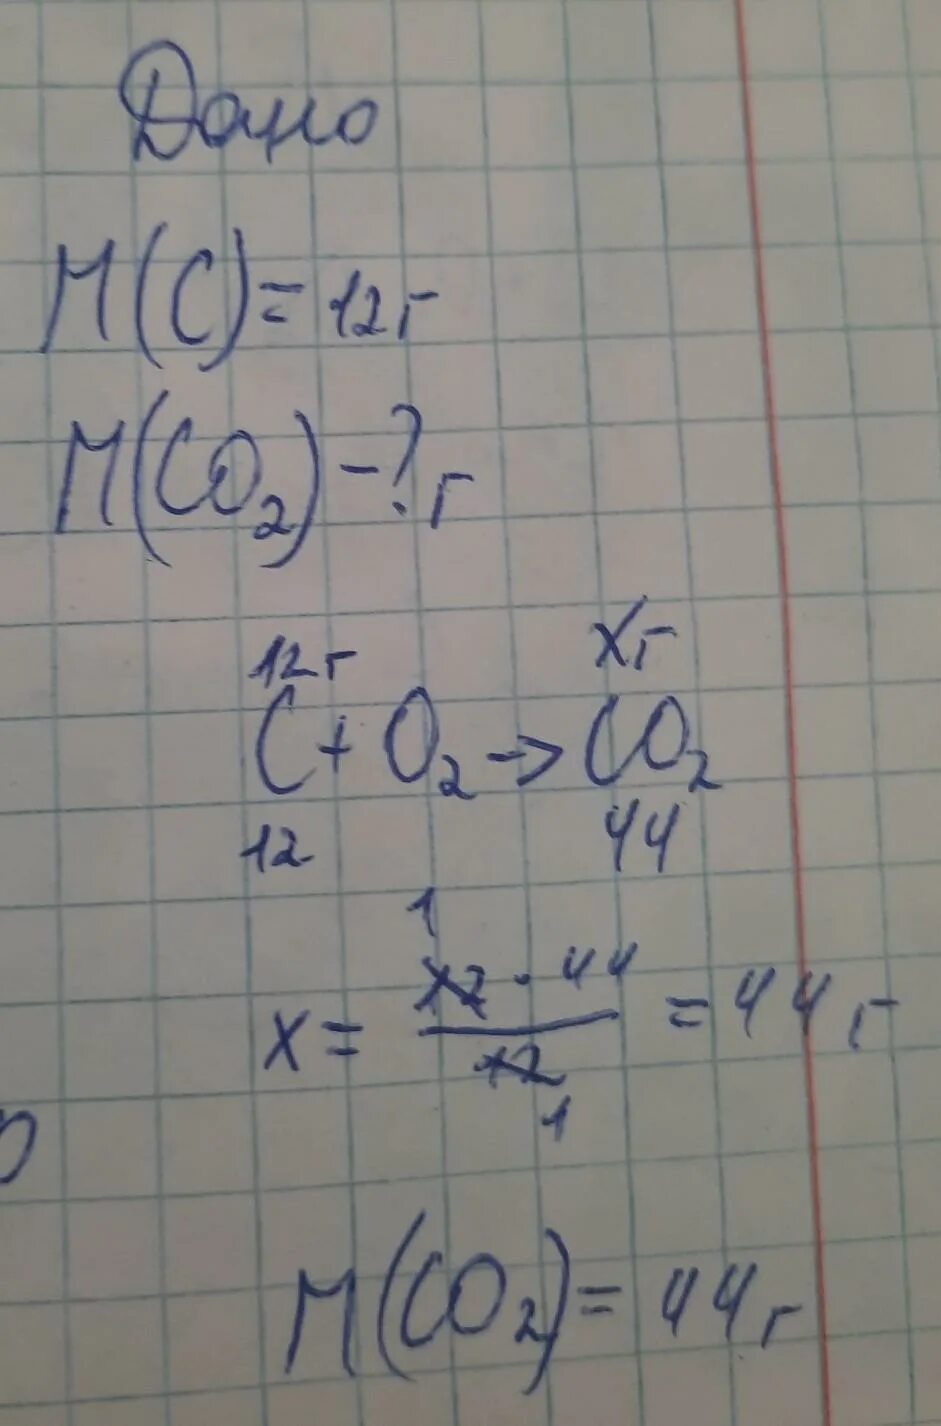 Дано
M(C)= 12г
M(CO₂) -? г
12г хг
C + O₂ -> CO₂
12 44
1
x = 12 · 44 / 12 = 44 г
1
M(CO₂) = 44 г